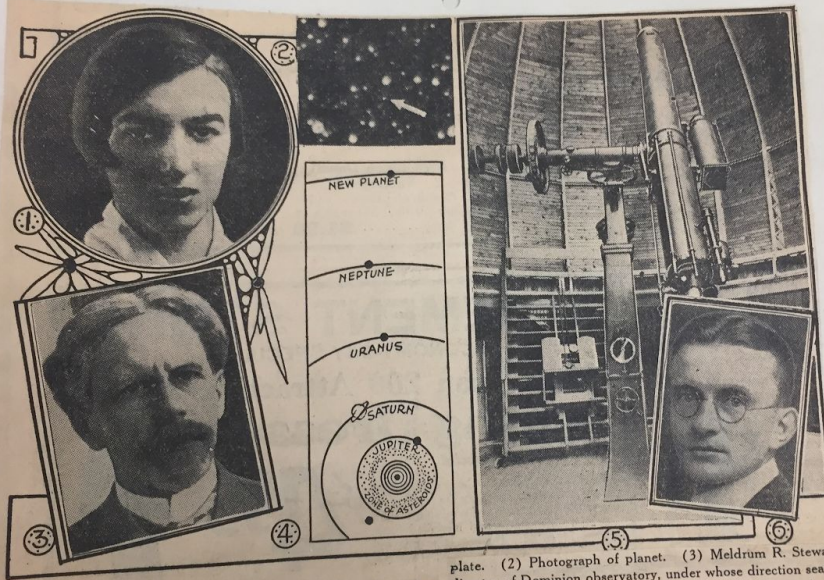 2
1
NEW PLANET
NEPTUNE
URANUS
SATURN
JUPITER
ZONE OF ASTEROIDS
3
4
5
6
plate. (2) Photograph of planet. (3) Meldrum R. Stewa
of Dominion observatory, under whose direction sea